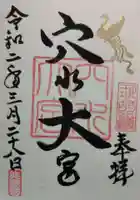 奉拝
穴水大宮
令和二年三月二十八日